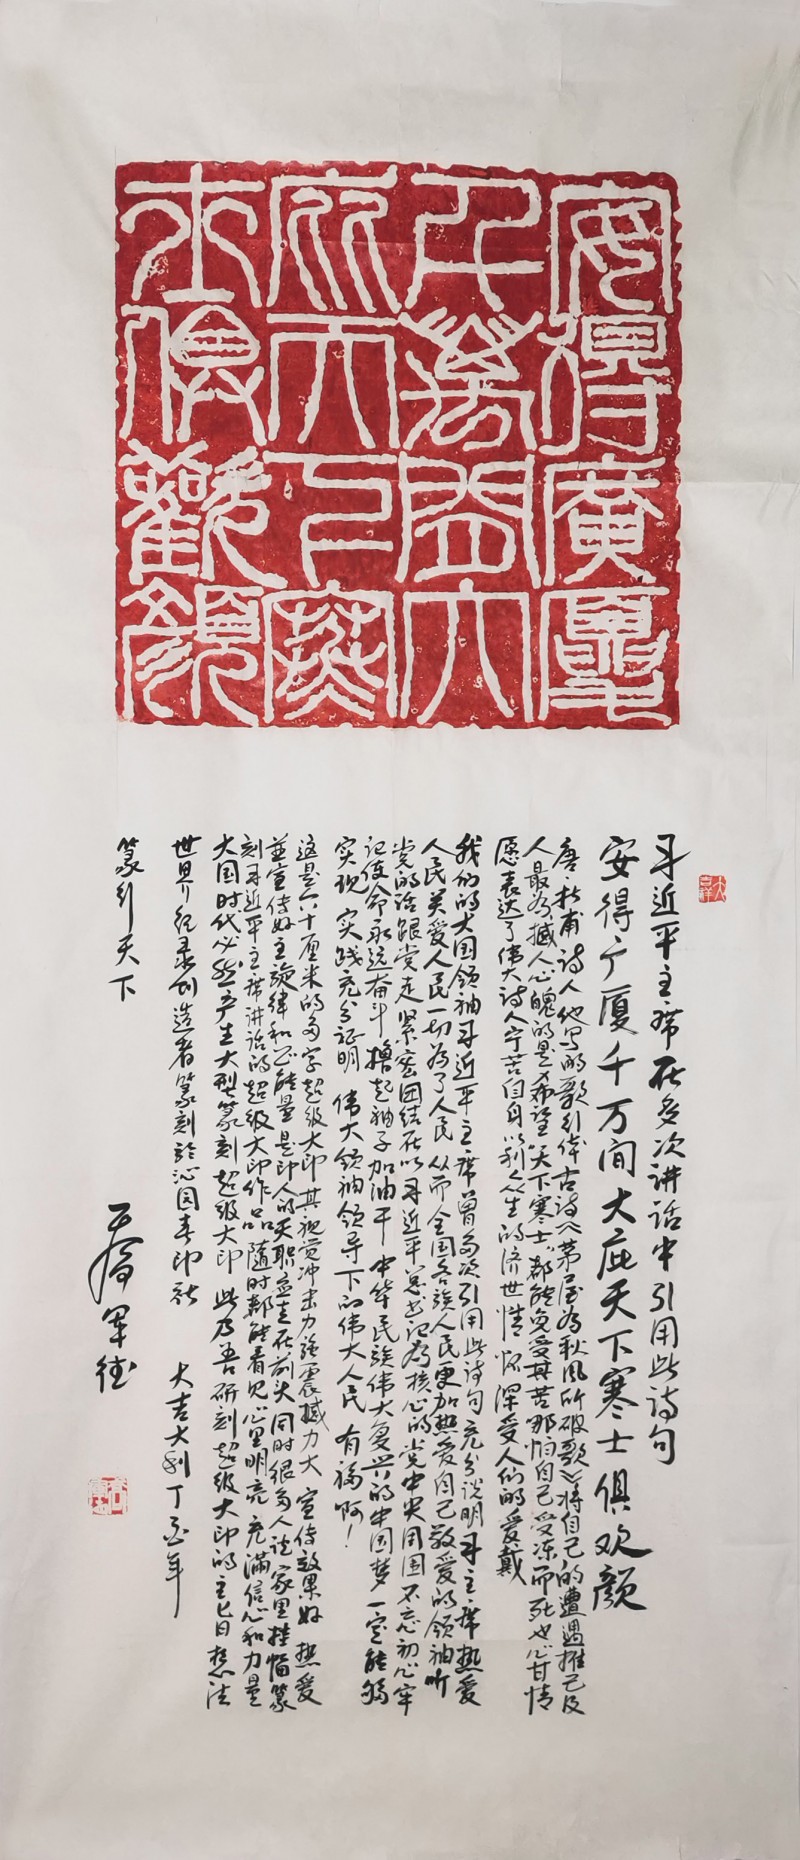 安得廣厦
千萬間大
庇天下寒
士俱歡顏
大吉祥
习近平主席在多次讲话中引用此诗句
安得广厦千万间大庇天下寒士俱欢颜
唐杜甫诗人他写的歌引体古诗《茅屋为秋风所破歌》将自己的遭遇推己及
人最为撼人心魄的是希望“天下寒士”都能免受其苦那怕自己受冻而死也心甘情
愿表达了伟大诗人宁苦自身以利众生的济世情怀深受人们的爱戴
我们的大国领袖习近平主席曾多次引用此诗句充分说明习主席热爱
人民关爱人民一切为了人民从而全国各族人民更加热爱自己敬爱的领袖听
党的话跟党走紧密团结在以习近平总书记为核心的党中央周围不忘初心牢
记使命永远奋斗撸起袖子加油干中华民族伟大复兴的中国梦一定能够
实现实践充分证明伟大领袖领导下的伟大人民有福啊！
这是六十厘米的多字超级大印其视觉冲击力强震撼力大宣传效果好热爱
并宣传好主旋律和正能量是印人的天职并走在前头同时很多人说家里挂幅篆
刻习近平主席讲话的超级大印作品随时都能看见心里明亮充满信心和力量
大国时代必然产生大型篆刻超级大印此乃吾研刻超级大印的主旨想法
世界纪录创造者篆刻於沁园春印社 大吉大利丁酉年
篆引天下
乔军徒